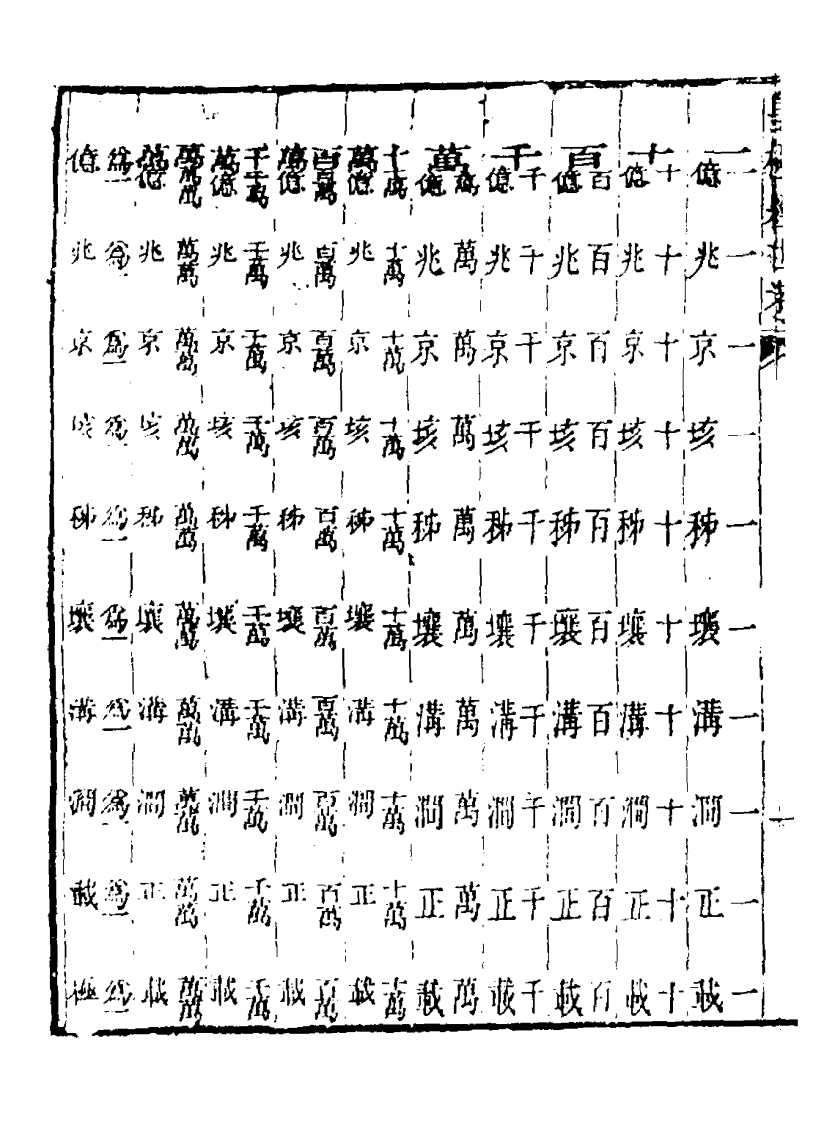 一 一億 一兆 一京 一垓 一秭 一壤 一溝 一澗 一正 一載
十 十億 十兆 十京 十垓 十秭 十壤 十溝 十澗 十正 十載
百 百億 百兆 百京 百垓 百秭 百壤 百溝 百澗 百正 百載
千 千億 千兆 千京 千垓 千秭 千壤 千溝 千澗 千正 千載
萬 萬億 萬兆 萬京 萬垓 萬秭 萬壤 萬溝 萬澗 萬正 萬載
十萬 十萬億 十萬兆 十萬京 十萬垓 十萬秭 十萬壤 十萬溝 十萬澗 十萬正 十萬載
百萬 百萬億 百萬兆 百萬京 百萬垓 百萬秭 百萬壤 百萬溝 百萬澗 百萬正 百萬載
千萬 千萬億 千萬兆 千萬京 千萬垓 千萬秭 千萬壤 千萬溝 千萬澗 千萬正 千萬載
萬萬 萬萬億 萬萬兆 萬萬京 萬萬垓 萬萬秭 萬萬壤 萬萬溝 萬萬澗 萬萬正 萬萬載
為一億 為一兆 為一京 為一垓 為一秭 為一壤 為一溝 為一澗 為一載 為一極